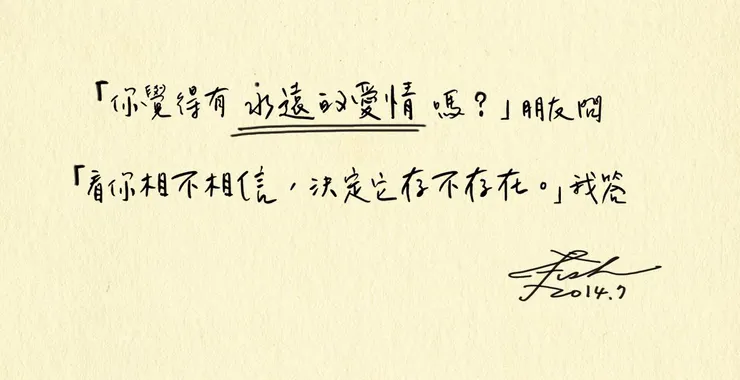 「你覺得有永遠的愛情嗎？」朋友問
「看你相不相信，決定它存不存在。」我答
Fish
2014.7